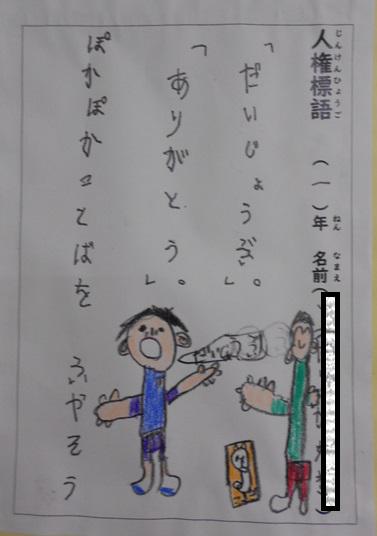 じんけんひょうご ねん なまえ
人権標語 (一)年 名前( )
「だいじょうぶ。」
「ありがとう。」
ぽかぽかことばを ふやそう